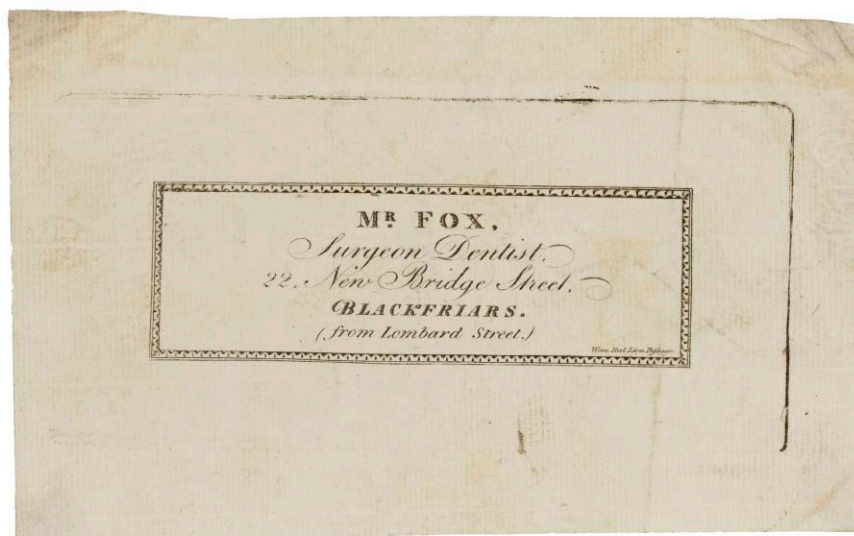 MR. FOX.
Surgeon Dentist.
22, New Bridge Street.
BLACKFRIARS.
(from Lombard Street.)
Red Lion Passage